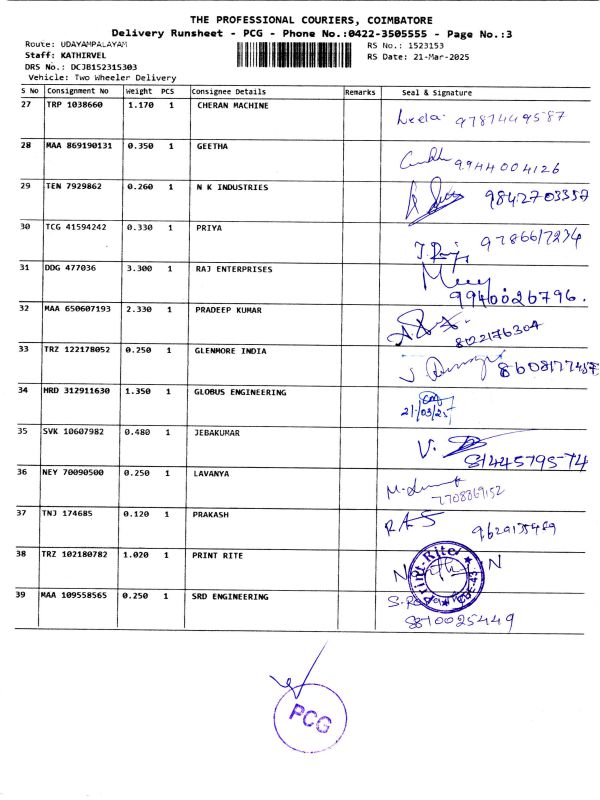 THE PROFESSIONAL COURIERS, COIMBATORE
Delivery Runsheet - PCG - Phone No.:0422-3505555 - Page No.:3
Route: UDAYAMPALAYAM
RS No.: 1523153
Staff: KATHIRVEL
RS Date: 21-Mar-2025
DRS No.: DCJB152315303
Vehicle: Two Wheeler Delivery
S No Consignment No Weight PCS Consignee Details Remarks Seal & Signature
27 TRP 1038660 1.170 1 CHERAN MACHINE
Leela 9787449587
28 MAA 869190131 0.350 1 GEETHA
9944004126
29 TEN 7929862 0.260 1 N K INDUSTRIES
9842703357
30 TCG 41594242 0.330 1 PRIYA
9786617234
31 DDG 477036 3.300 1 RAJ ENTERPRISES
9940026796.
32 MAA 650607193 2.330 1 PRADEEP KUMAR
8122176304
33 TRZ 122178052 0.250 1 GLENMORE INDIA
8608177457
34 HRD 312911630 1.350 1 GLOBUS ENGINEERING
21/03/25
35 SVK 10607982 0.480 1 JEBAKUMAR
V. 8144579574
36 NEY 70090500 0.250 1 LAVANYA
7708869152
37 TNJ 174685 0.120 1 PRAKASH
9629135469
38 TRZ 102180782 1.020 1 PRINT RITE
Print-Rite
39 MAA 109558565 0.250 1 SRD ENGINEERING
8810025449
PCG